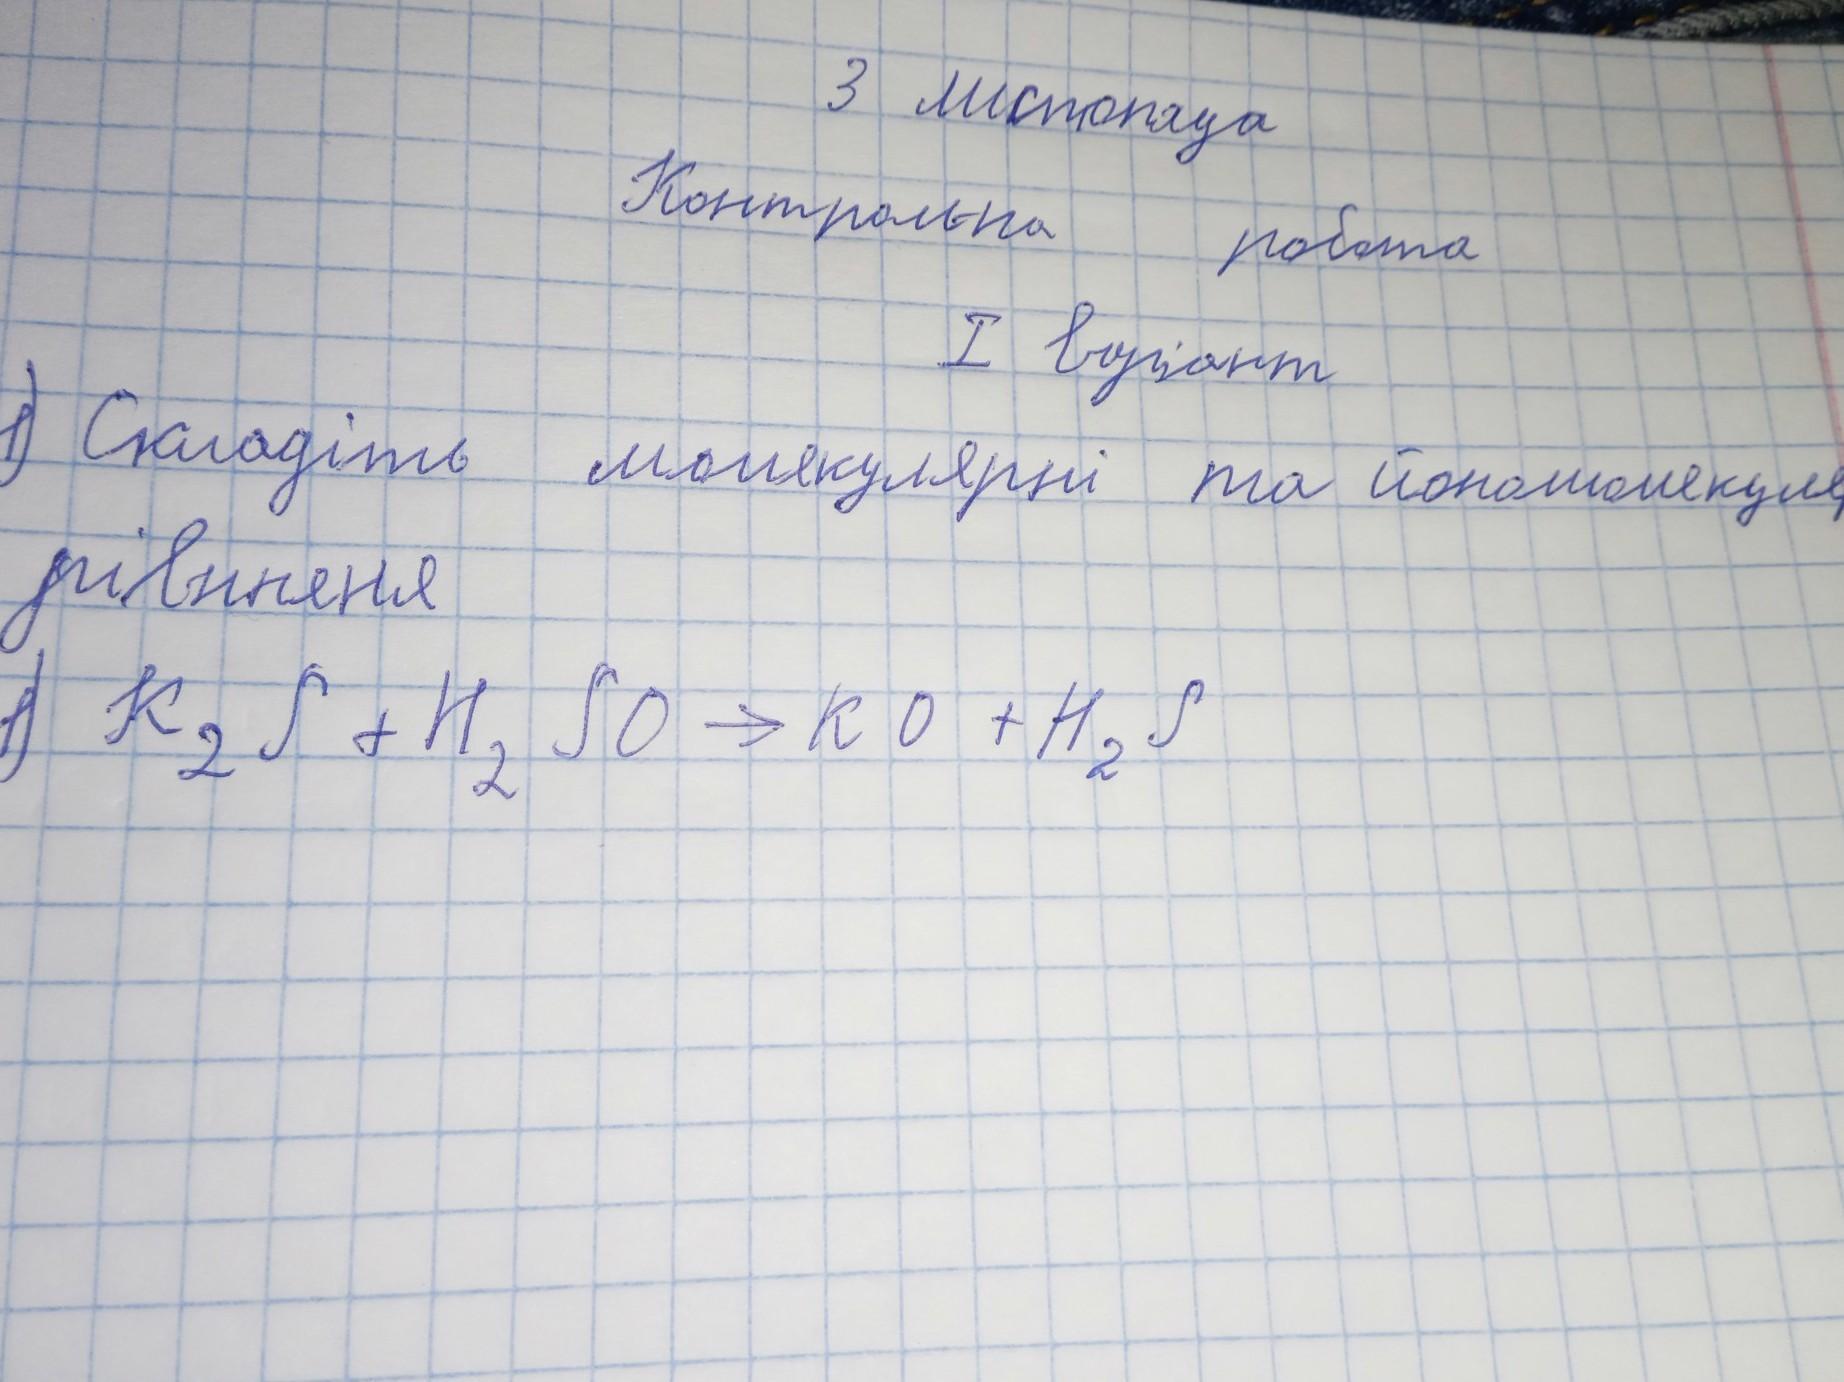 3 листопада
Контрольна робота
I варіант
1) Складіть молекулярні та йономолекуля
рівненя
1) K₂S + H₂SO → KO + H₂S